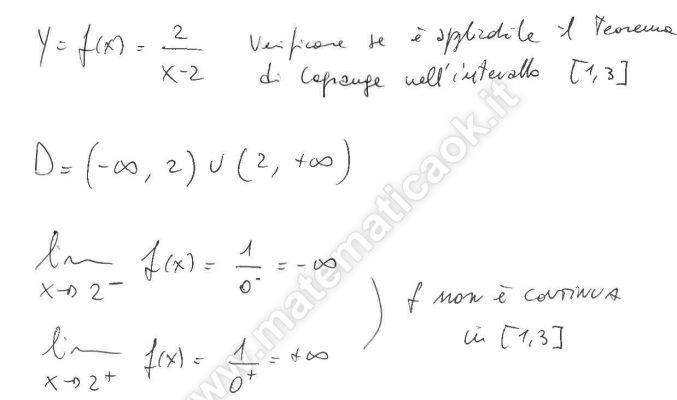 y = f(x) = 2/(x-2) Verificare se è applicabile il Teorema
di Lagrange nell'intervallo [1,3]
D = (-∞, 2) ∪ (2, +∞)
lim x→2⁻ f(x) = 1/0⁻ = -∞
lim x→2⁺ f(x) = 1/0⁺ = +∞
f non è CONTINUA
in [1,3]
www.matematicaok.it